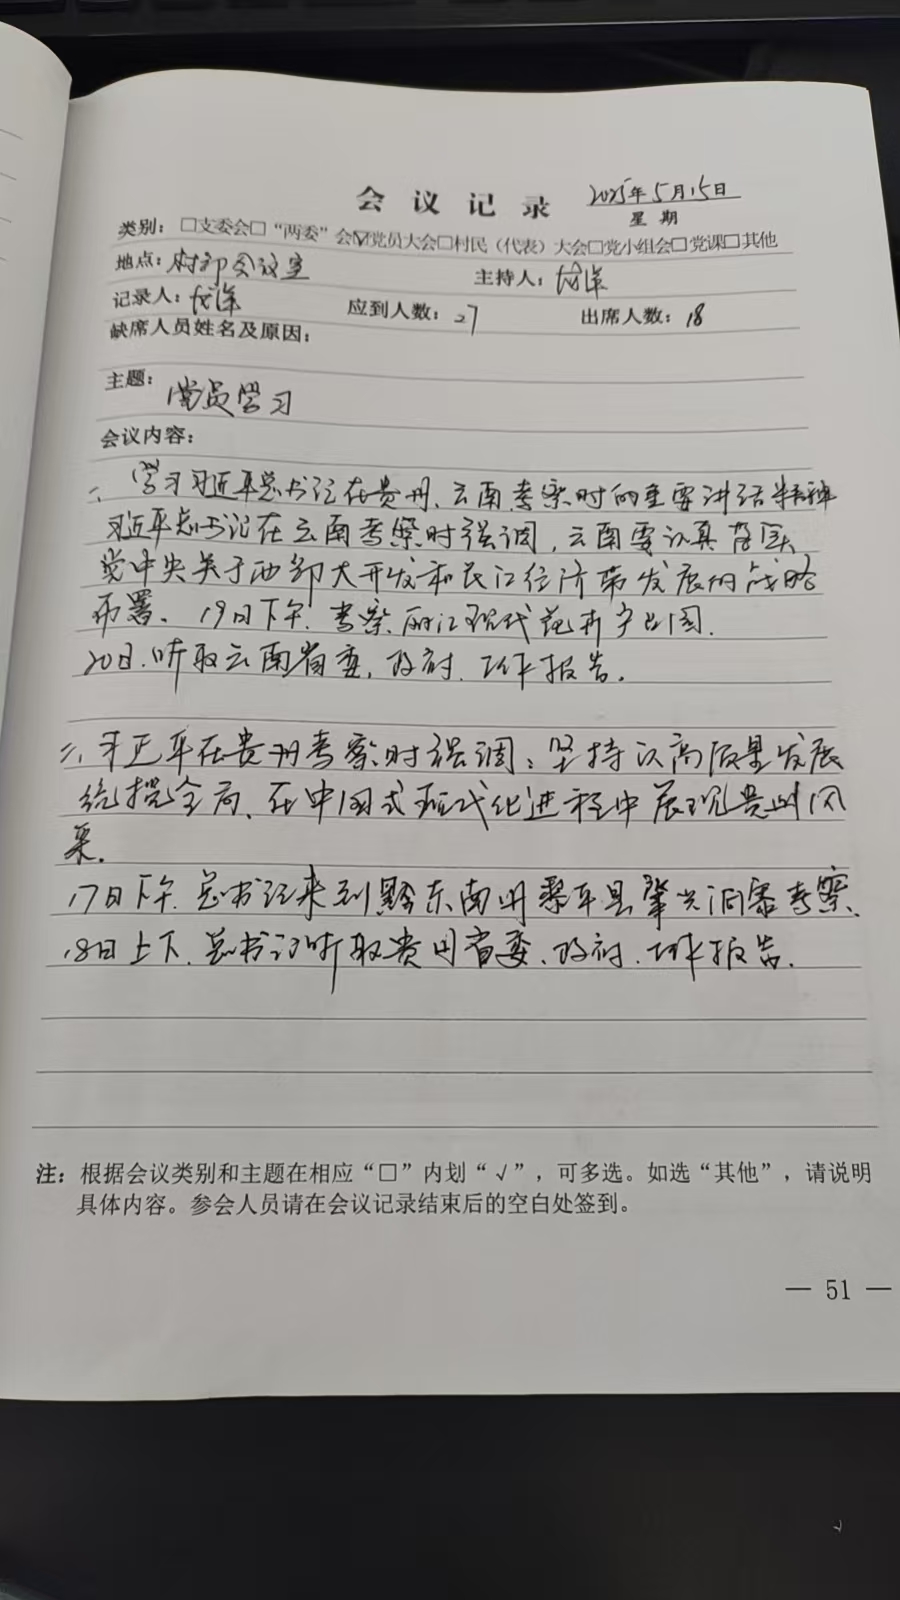 会议记录 2025年5月15日
星期
类别：□支委会□“两委”会☑党员大会□村民（代表）大会□党小组会□党课□其他
地点：村部会议室 主持人：
记录人： 应到人数：27 出席人数：18
缺席人员姓名及原因：
主题：党员学习
会议内容：
一、学习习近平总书记在贵州、云南考察时的重要讲话精神
习近平总书记在云南考察时强调，云南要认真落实
党中央关于西部大开发和长江经济带发展的战略
布署。19日下午，考察丽江现代花卉产业园.
20日.听取云南省委，政府，工作报告。
二、习近平在贵州考察时强调：坚持以高质量发展
统揽全局、在中国式现代化进程中展现贵州风
采.
17日下午.总书记来到黔东南州黎平县肇兴侗寨考察.
18日上下.总书记听取贵州省委、政府.工作报告.
注：根据会议类别和主题在相应“□”内划“√”，可多选。如选“其他”，请说明
具体内容。参会人员请在会议记录结束后的空白处签到。
— 51 —